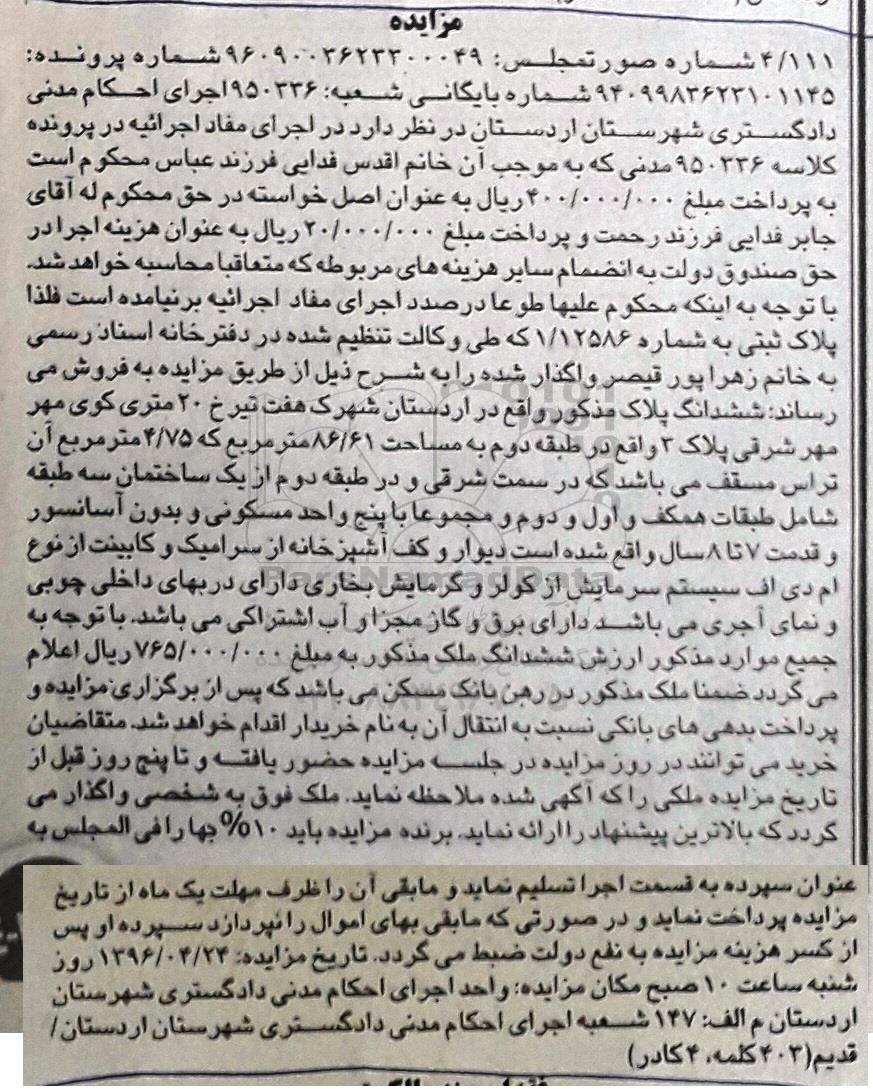 مزایده
۴/۱۱۱ شماره صورتمجلس: ۹۶۰۹۰۰۳۶۲۳۳۰۰۰۴۹ شماره پرونده:
۹۴۰۹۹۸۳۶۲۳۱۰۱۱۴۵ شماره بایگانی شعبه: ۹۵۰۳۳۶ اجرای احکام مدنی
دادگستری شهرستان اردستان در نظر دارد در اجرای مفاد اجرائیه در پرونده
کلاسه ۹۵۰۳۳۶ مدنی که به موجب آن خانم اقدس فدایی فرزند عباس محکوم است
به پرداخت مبلغ ۴۰۰/۰۰۰/۰۰۰ ریال به عنوان اصل خواسته در حق محکوم له آقای
جابر فدایی فرزند رحمت و پرداخت مبلغ ۲۰/۰۰۰/۰۰۰ ریال به عنوان هزینه اجرا در
حق صندوق دولت به انضمام سایر هزینه های مربوطه که متعاقبا محاسبه خواهد شد.
با توجه به اینکه محکوم علیها طوعا درصدد اجرای مفاد اجرائیه برنیامده است فلذا
پلاک ثبتی به شماره ۱/۱۲۵۸۶ که طی وکالت تنظیم شده در دفترخانه اسناد رسمی
به خانم زهرا پور قیصر واگذار شده را به شرح ذیل از طریق مزایده به فروش می
رساند: ششدانگ پلاک مذکور واقع در اردستان شهرک هفت تیر خ ۲۰ متری کوی مهر
مهر شرقی پلاک ۳ واقع در طبقه دوم به مساحت ۸۶/۶۱ متر مربع که ۴/۷۵ متر مربع آن
تراس مسقف می باشد که در سمت شرقی و در طبقه دوم از یک ساختمان سه طبقه
شامل طبقات همکف و اول و دوم و مجموعا با پنج واحد مسکونی و بدون آسانسور
و قدمت ۷ تا ۸ سال واقع شده است دیوار و کف آشپزخانه از سرامیک و کابینت از نوع
ام دی اف سیستم سرمایش از کولر و گرمایش بخاری دارای دربهای داخلی چوبی
و نمای آجری می باشد دارای برق و گاز مجزا و آب اشتراکی می باشد. با توجه به
جمیع موارد مذکور ارزش ششدانگ ملک مذکور به مبلغ ۷۶۵/۰۰۰/۰۰۰ ریال اعلام
می گردد ضمنا ملک مذکور در رهن بانک مسکن می باشد که پس از برگزاری مزایده و
پرداخت بدهی های بانکی نسبت به انتقال آن به نام خریدار اقدام خواهد شد. متقاضیان
خرید می توانند در روز مزایده در جلسه مزایده حضور یافته و تا پنج روز قبل از
تاریخ مزایده ملکی را که آگهی شده ملاحظه نماید. ملک فوق به شخصی واگذار می
گردد که بالاترین پیشنهاد را ارائه نماید. برنده مزایده باید ۱۰% بها را فی المجلس به
عنوان سپرده به قسمت اجرا تسلیم نماید و مابقی آن را ظرف مهلت یک ماه از تاریخ
مزایده پرداخت نماید و در صورتی که مابقی بهای اموال را نپردازد سپرده او پس
از کسر هزینه مزایده به نفع دولت ضبط می گردد. تاریخ مزایده: ۱۳۹۶/۰۴/۲۴ روز
شنبه ساعت ۱۰ صبح مکان مزایده: واحد اجرای احکام مدنی دادگستری شهرستان
اردستان م الف: ۱۴۷ شعبه اجرای احکام مدنی دادگستری شهرستان اردستان/
قدیم(۴۰۳ کلمه، ۴ کادر)